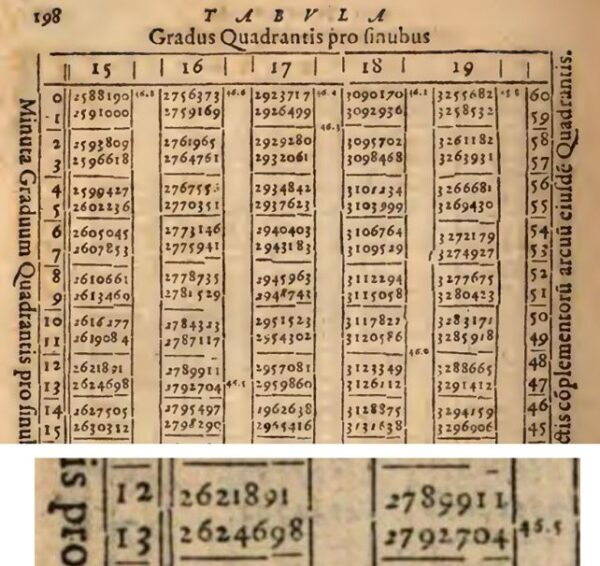 198 TABVLA
Gradus Quadrantis pro sinubus
15 16 17 18 19
0 2588190 46.8 2756373 46.6 2923717 46.4 3090170 46.1 3255682 45.8 60
1 2591000 2759169 2926499 3092936 3258532 59
46.3
2 2593809 2761965 2929280 3095702 3261182 58
3 2596618 2764761 2932061 3098468 3263931 57
4 2599427 2767556 2934842 3101234 3266681 56
5 2602236 2770351 2937623 3103999 3269430 55
6 2605045 2773146 2940403 3106764 3272179 54
7 2607853 2775941 2943183 3109529 3274927 53
8 2610661 2778735 2945963 3112294 3277675 52
9 2613469 2781529 2948742 3115058 3280423 51
10 2616277 2784323 2951523 3117822 3283171 50
11 2619084 2787117 2954302 3120586 3285918 49
46.0
12 2621891 2789911 2957081 3123349 3288665 48
13 2624698 2792704 46.5 2959860 3126112 3291412 47
14 2627505 2795497 2962638 3128875 3294159 46
15 2630312 2798290 2965416 3131638 3296906 45
Minuta Graduum Quadrantis pro sinu
ctis cóplementorũ arcuũ eiusdē Quadrantis.
is pro
12 2621891 2789911
13 2624698 2792704 46.5